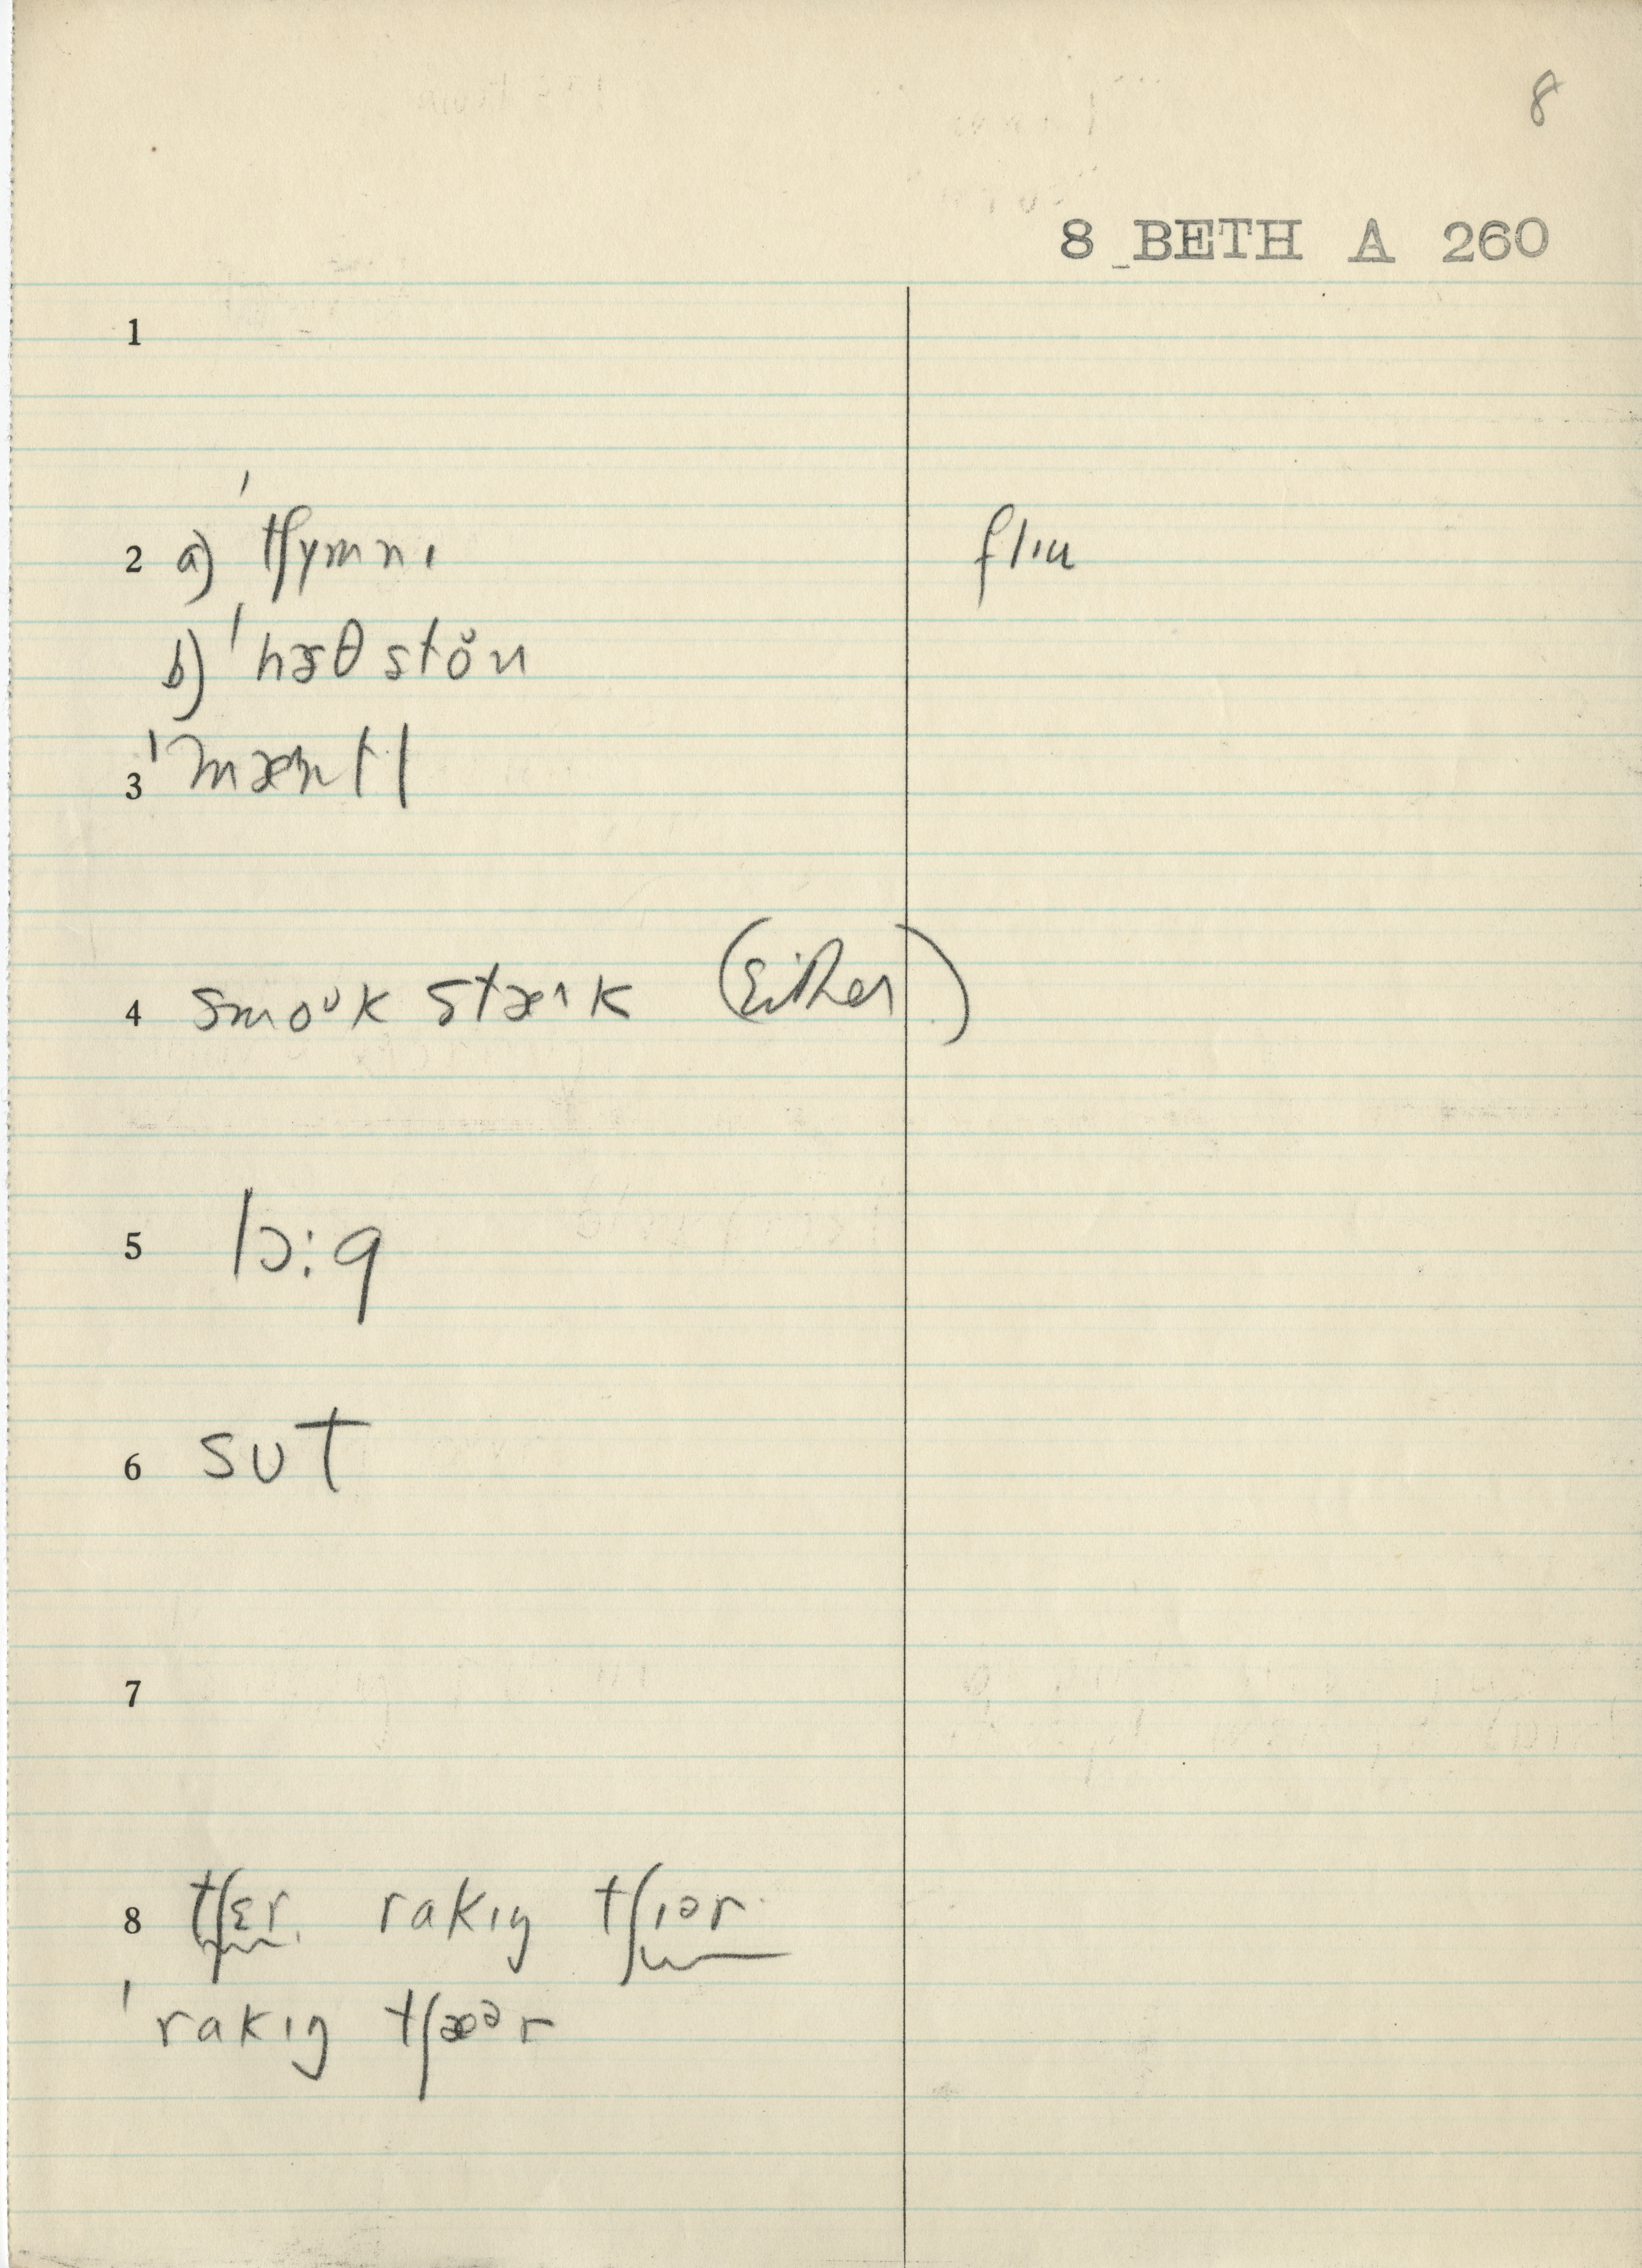 8
8 BETH A 260
1
2 a) ˈtʃɣmnɪ flɪu
b) ˈhɜθ stŏn
3 ˈmæntl
4 smoᴜk stæᴧk (Either)
5 lɔ:g
6 sᴜt
7
8 tʃɛr. rakɪŋ tʃɪər
ˈrakɪŋ tʃæᵊr